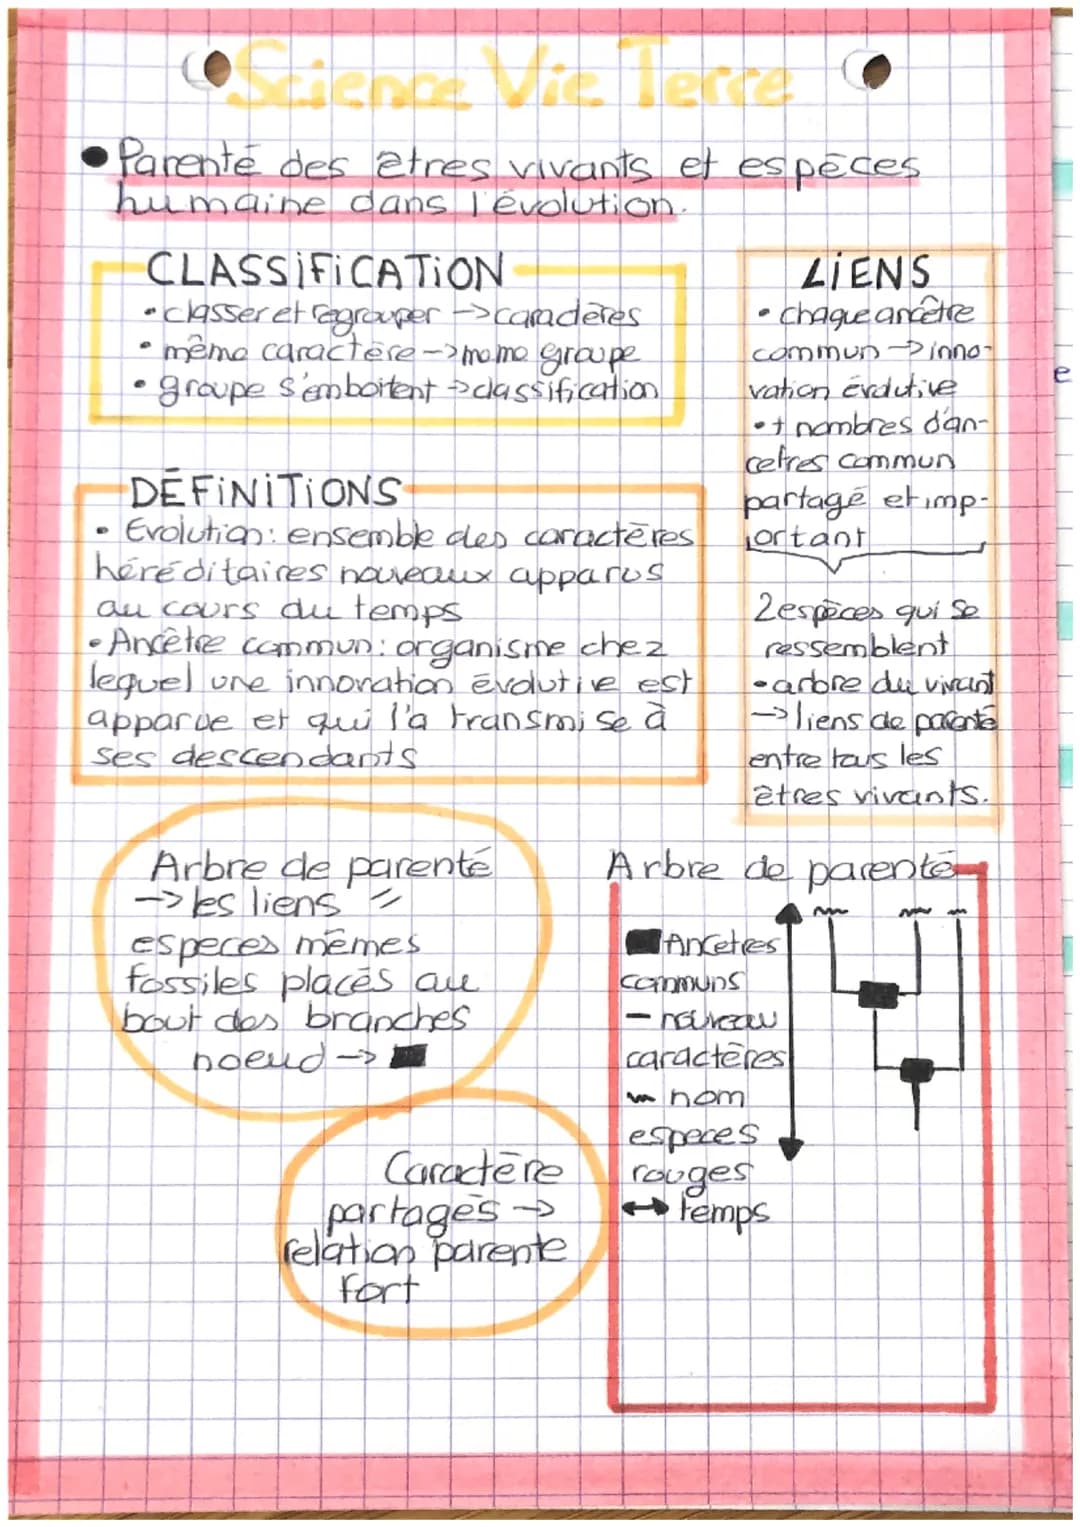 Science Vie Terre
• Parenté des êtres vivants et espèces
humaine dans l'évolution.
CLASSiFiCATiON
• classer et regrouper -> caractères
• même caractère -> meme groupe
• groupe s'emboitent -> classification
DÉFiNiTiONS
• Evolution : ensemble des caractères
héréditaires nouveaux apparus
au cours du temps
• Ancêtre commun : organisme chez
lequel une innovation évolutive est
apparue et qui l'a transmise à
ses descendants
LiENS
• chaque ancêtre
commun -> inno-
vation évolutive
• + nombres d'an-
cetres commun
partagé et imp-
ortant
2 espèces qui se
ressemblent
• arbre du vivant
-> liens de parenté
entre tous les
êtres vivants.
Arbre de parenté
-> les liens =
especes mêmes
fossiles placés au
bout des branches
noeud ->
Caractère
partagés ->
relation parente
fort
Arbre de parenté
Ancetres
communs
- nouveau
caractères
nom
especes
rouges
↔ temps
e